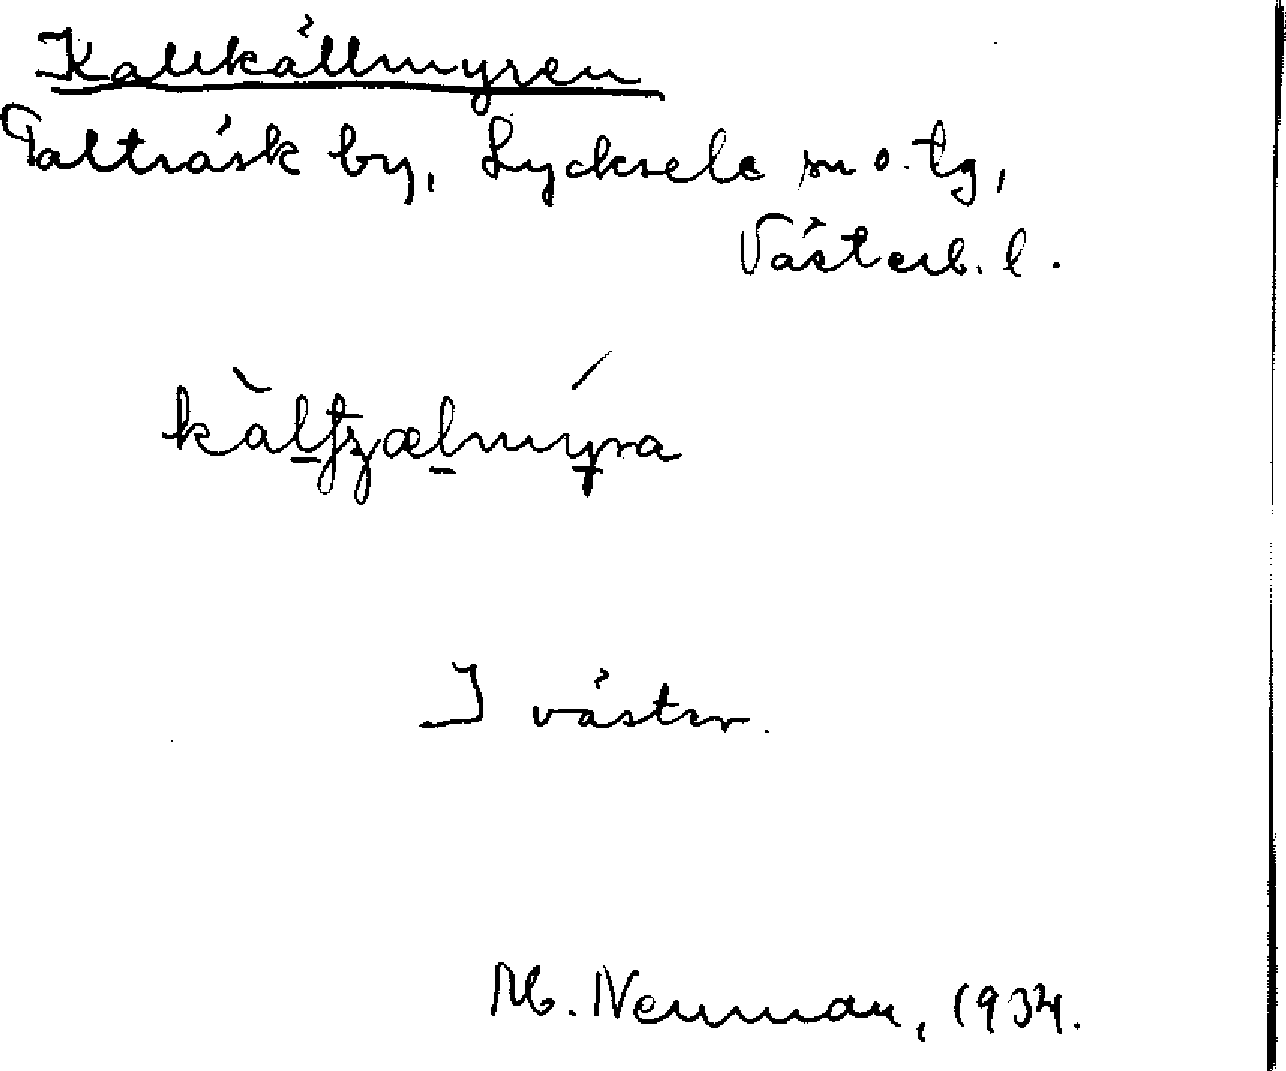 Kallkällmyren
Talträsk by, Lycksele sn o. tg,
Västerb. l.
kàlʈʂælmýra
I väster.
M. Neuman, 1934.